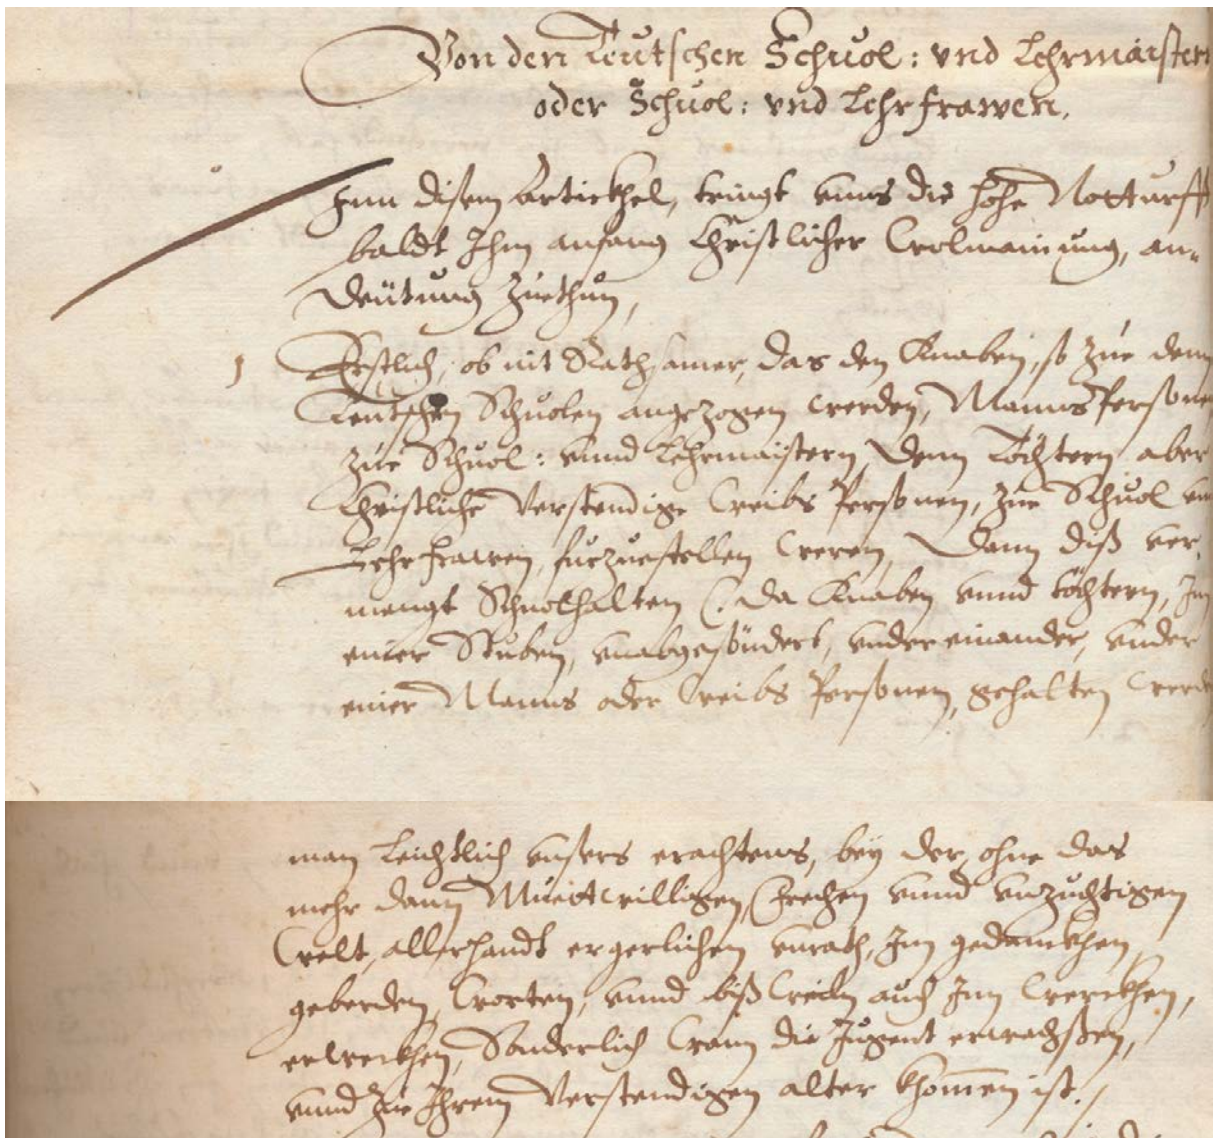 Von den Teutschen Schuol: vnd Lehrmaistern
oder Schuol: vnd Lehrfrawen.
Inn disem Artickhel, tringt vnns die hohe Notturfft
baldt Ihm anfang Christlicher Wolmainung, an-
deütung zuethun,
1 Erstlich, ob nit Rathsamer, das den Knaben, so zue denn
Teutschen Schuolen angezogen werden, Manns Personen
zue Schuol: vnnd Lehrmaistern, Denn Töchtern aber
Christliche Verstendige Weibs Personen, zue Schuol vnd
Lehrfrawen, fürzuestellen weren, Dann diß ver-
mengt Schuolhalten (. da Knaben vnnd töchtern, Inn
einer Stuben, vnabgesöndert, vndereinander, vnder
einer Manns oder Weibs Personen, gehalten werden
man Leichtlich vnsers erachtens, bey der, ohne das
mehr dann Muettwilligen, Frechen vnnd vnzüchtigen
Welt, allerhandt ergerlichen vnrath, Inn gedannckhen,
geberden, Worten, vnnd biß Weiln auch Inn Werckhen,
erweckhen, Sonderlich wann die Jugent erwachsßen,
vnnd zue Ihrem Verstendigen alter khommen ist./